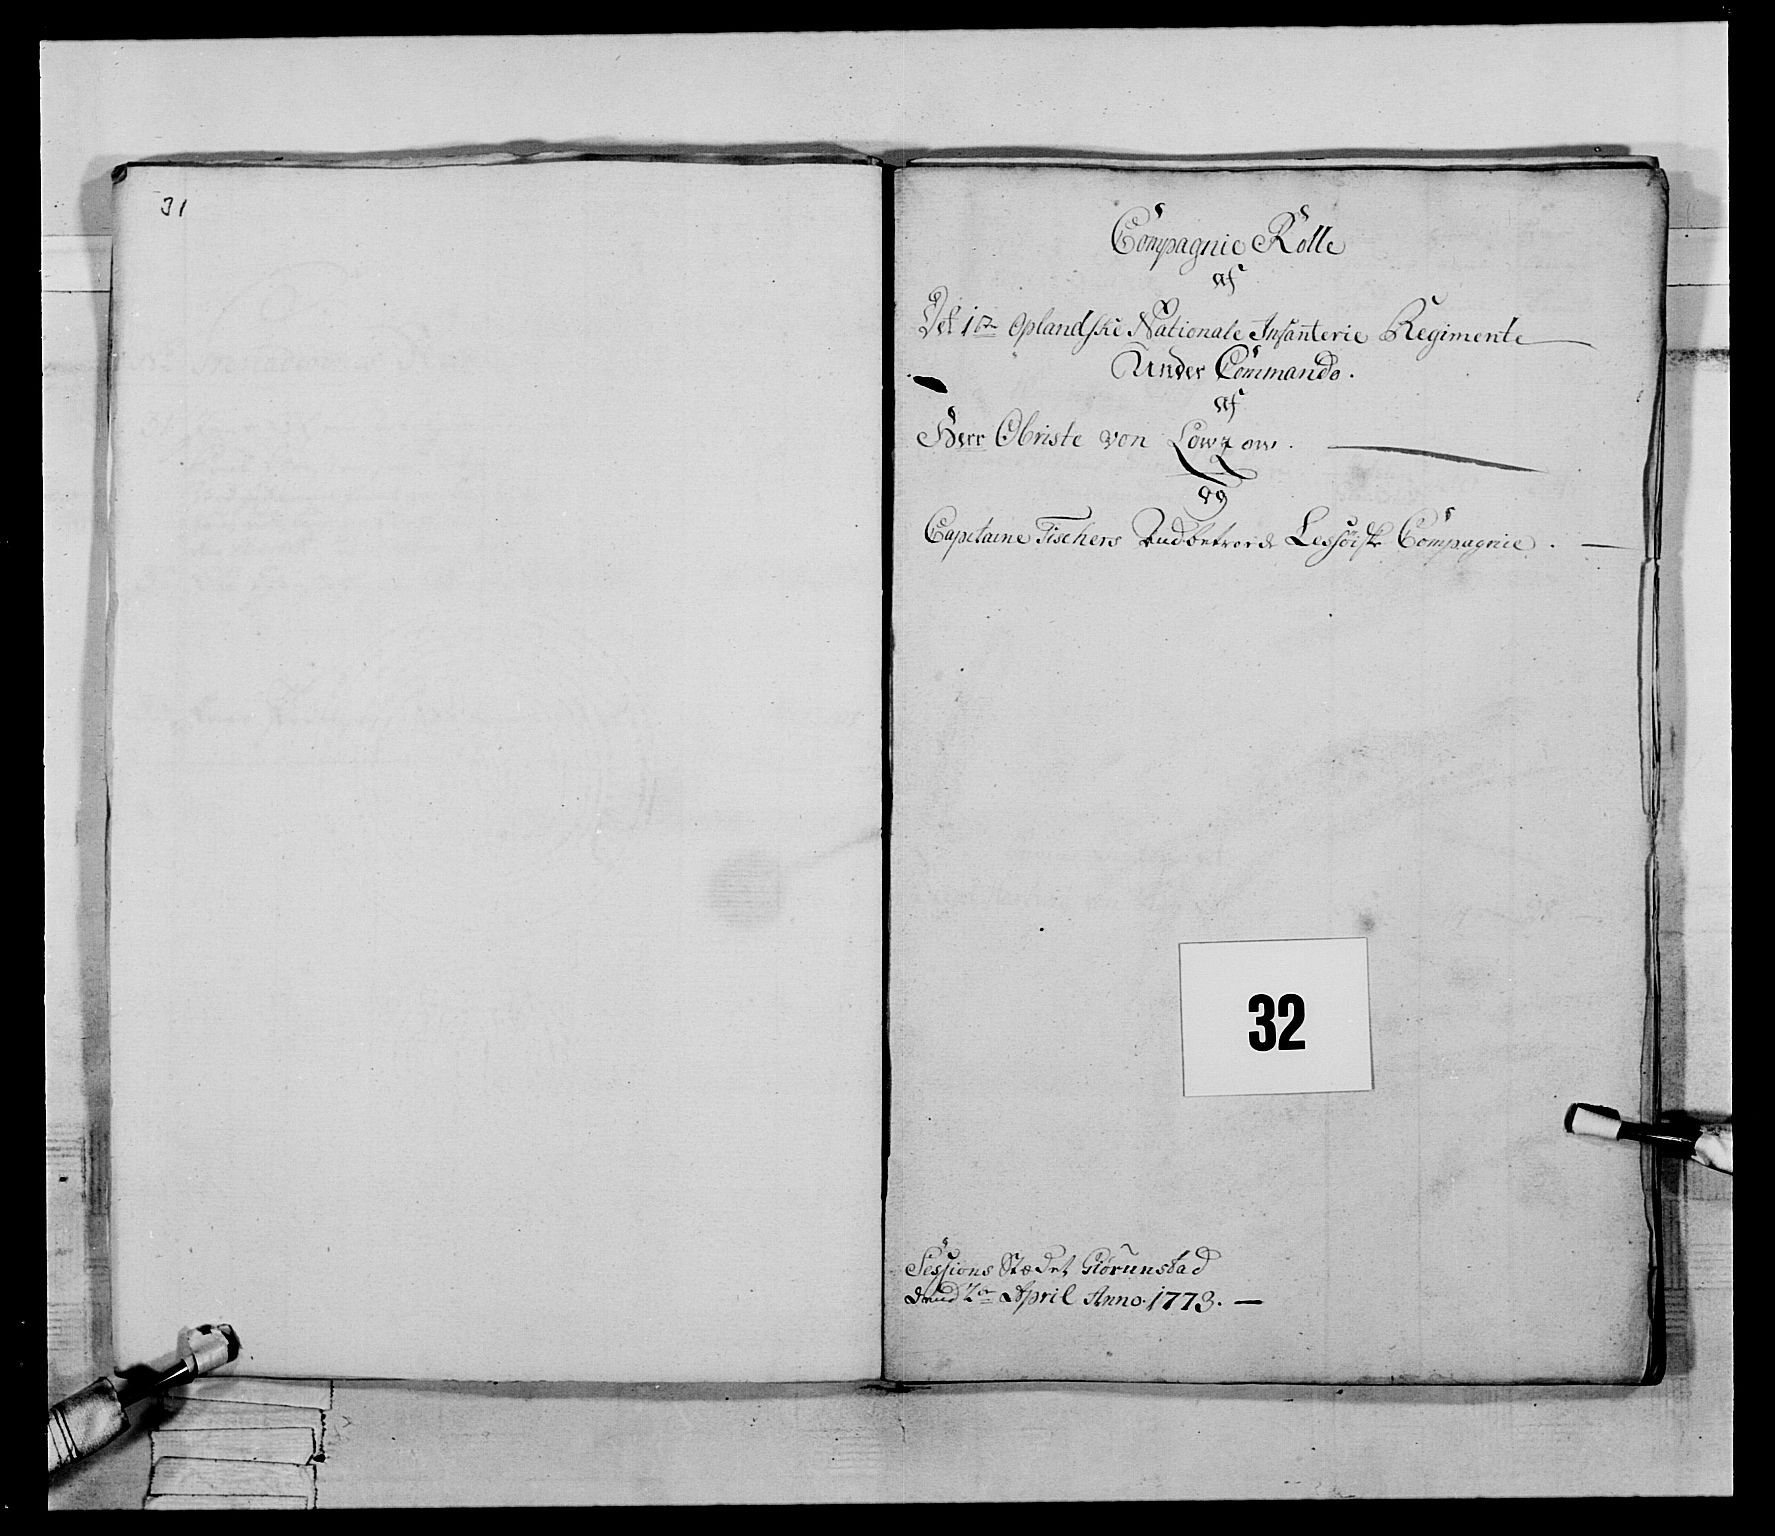 31
Compagnie Rolle
af
Det 1ste Oplandske Nationale Infanterie Regimente
Under Commando.
af
Herr Obriste von Lowzow.
og
Capitaine Fischers Andbetroede Lessøiske Compagnie.
32
Sessions Stædet Giørunstad
dend 2den April Anno. 1773.